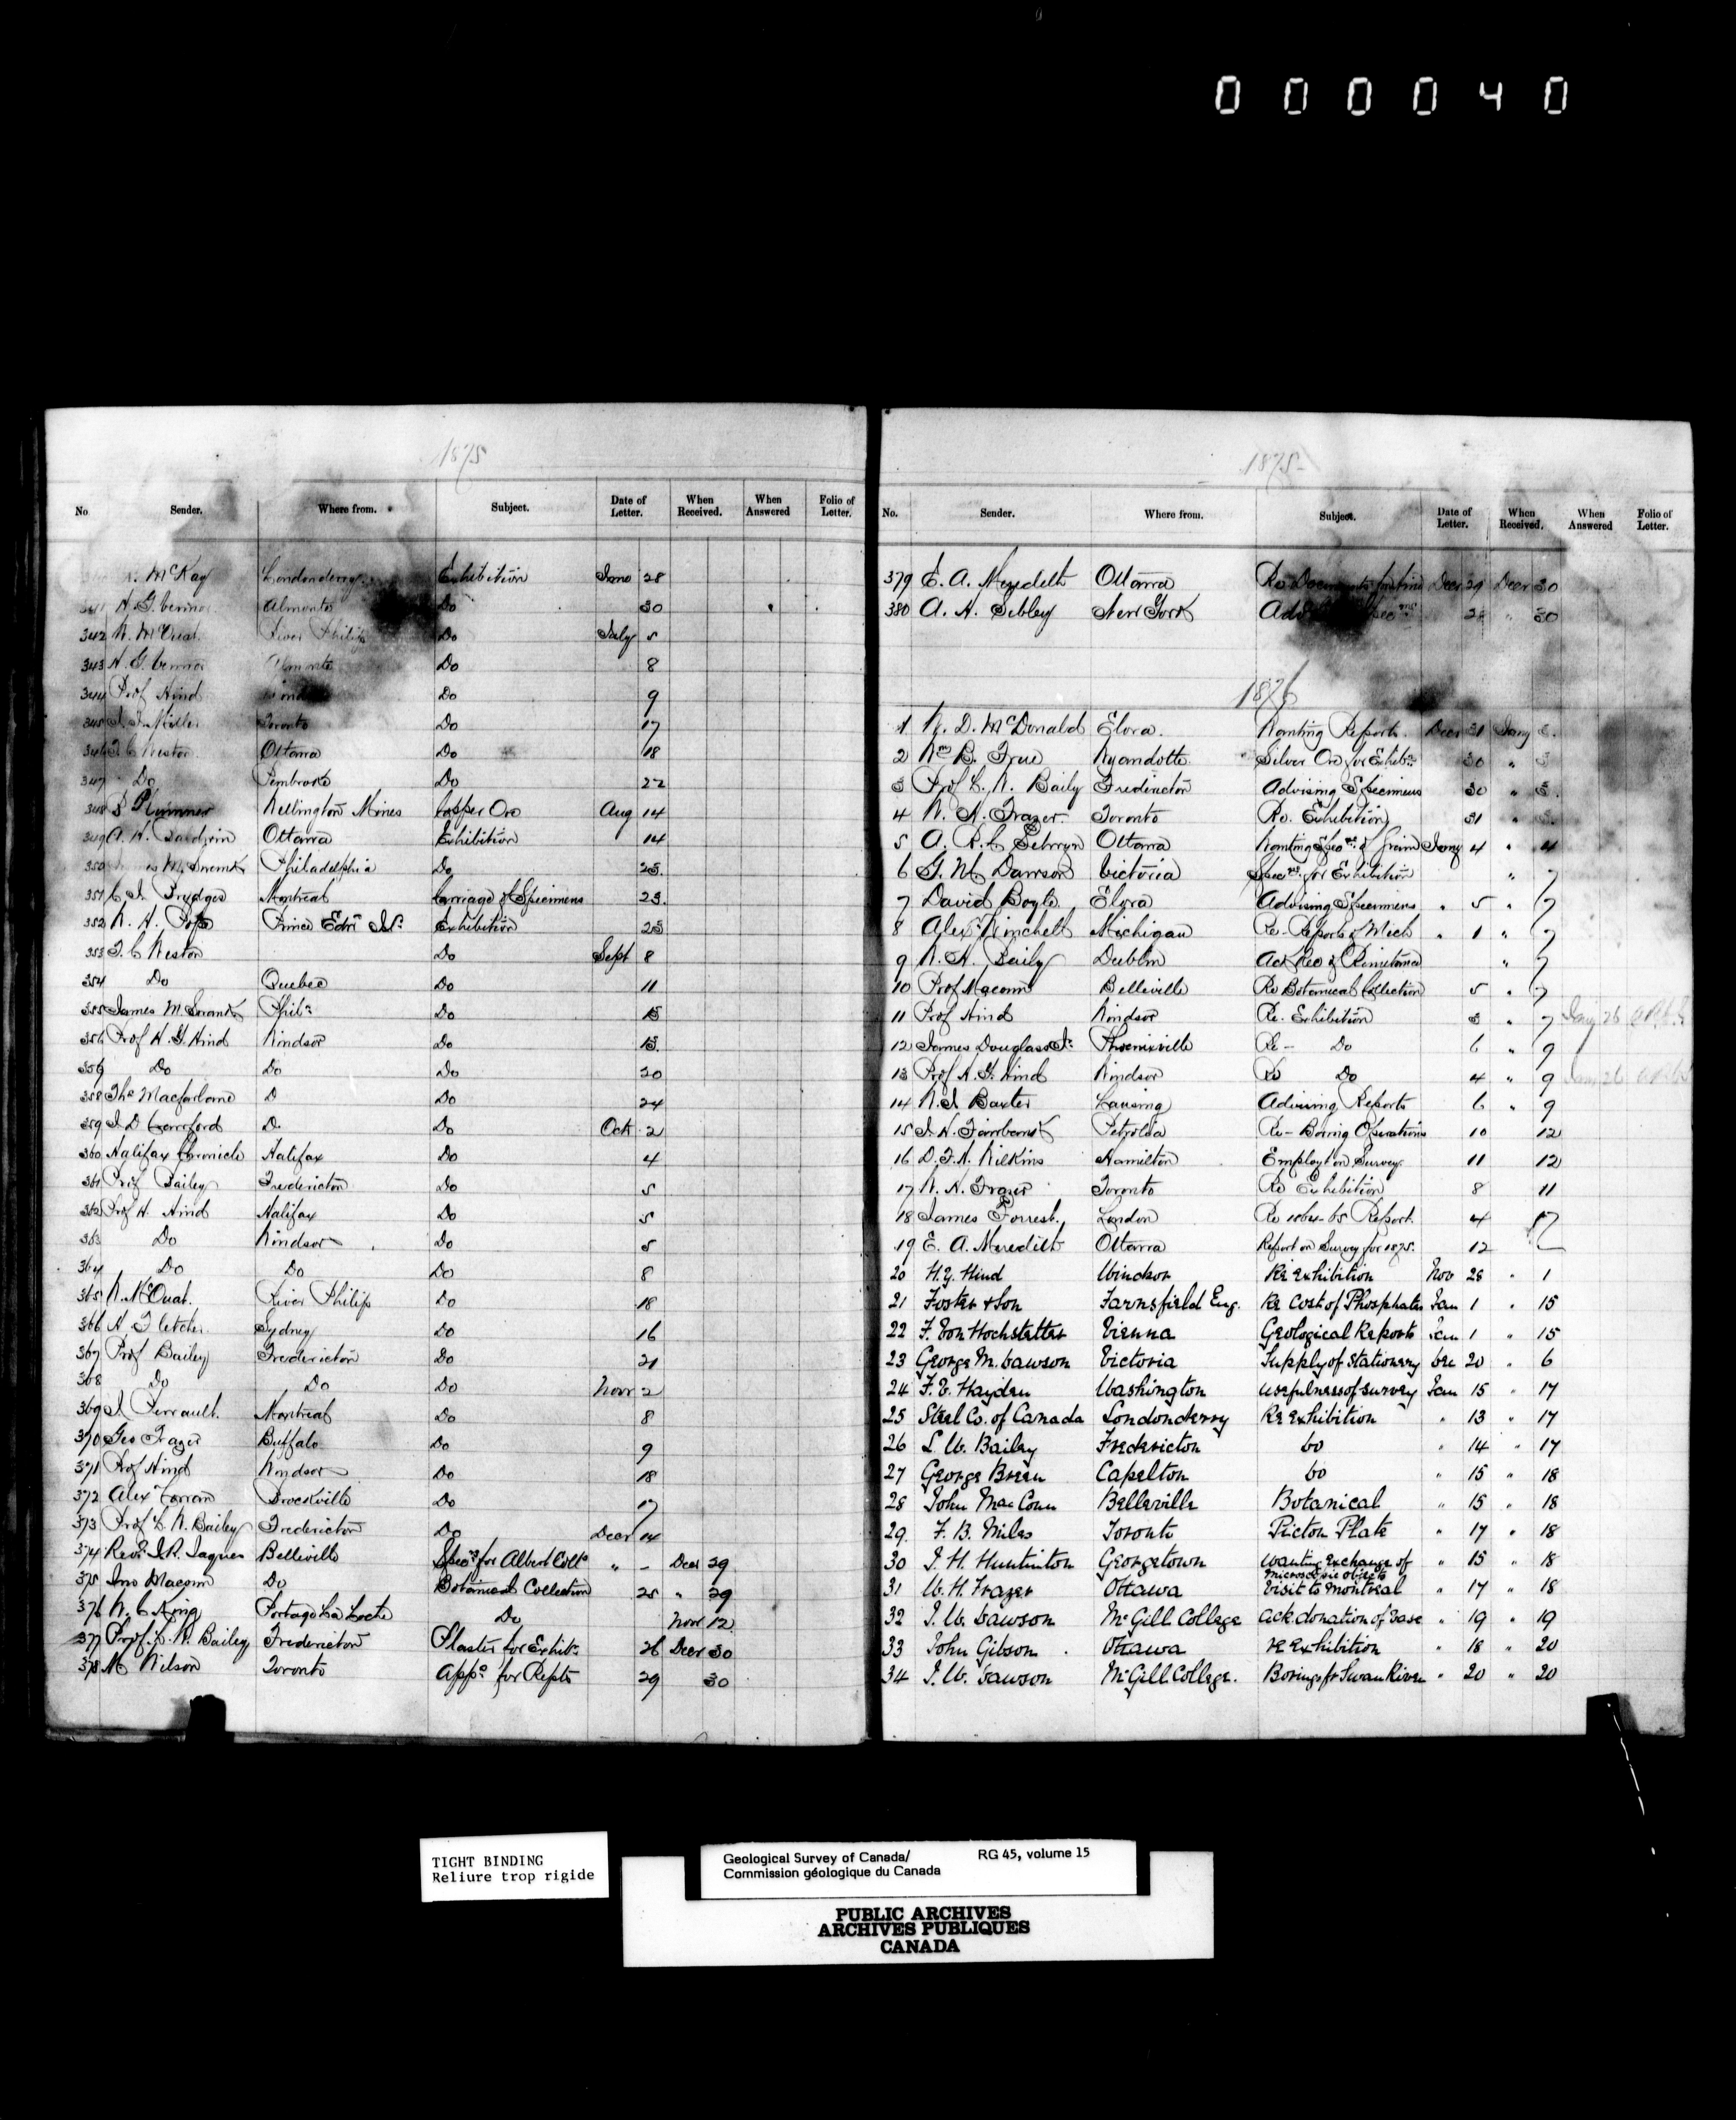 000040
1875
No Sender. Where from. Subject. Date of Letter. When Received. When Answered Folio of Letter.
McKay Londonderry Exhibition June 28
H. G. Vennor Almonte Do 30
342 W. McOuat. River Philip Do July 5
343 H. G. Vennor Almonte Do 8
344 Prof Hind Do 9
345 Miller Toronto Do 17
346 T. C Weston Ottawa Do 18
347 Do Pembroke Do 22
348 Plummer Wellington Mines Copper Ore Aug 14
349 A. H. Baldwin Ottawa Exhibition 14
350 Philadelphia Do 25.
351 C. J. Brydges Montreal Carriage of Specimens 23.
352 W. H. Pope Prince Edwd Isd Exhibition 25
353 T. C Weston Do Sept 8
354 Do Quebec Do 11
355 James M. Phila Do 15
356 Prof H. Y. Hind Windsor Do 13.
356 Do Do Do 20
358 Thos Macfarlane D Do 24
359 J. D Crawford D. Do Oct 2
360 Halifax Chronicle Halifax Do 4
361 Prof Bailey Fredericton Do 5
362 Prof H. Hind Halifax Do 5
363 Do Windsor Do 5
364 Do Do Do 8
365 W. McOuat. River Philip Do 18
366 H. Fletcher Sydney Do 16
367 Prof Bailey Fredericton Do 21
368 Do Do Do Novr 2
369 J Perrault. Montreal Do 8
370 Geo Frazer Buffalo Do 9
371 Prof Hind Windsor Do 18
372 Alex Brockville Do 17
373 Prof L. W. Bailey Fredericton Do Decr 14
374 Revd J. R. Jaques Belleville Specns for Albert Colle " – Decr 29
375 Jno Macoun Do Botanical Collection 25 " 29
376 W. C King Portage La Loche Do Novr 12.
377 Prof. L. W. Bailey Fredericton Plaster for Exhibn 26 Decr 30
378 M Wilson Toronto Appn for Repts 29 30
1875
No. Sender. Where from. Subject. Date of Letter. When Received. When Answered Folio of Letter.
379 E. A. Meredith Ottawa Re Documents Decr 29 Decr 30
380 A. H. Sibley New York 28 " 30
1876
1 W. D. McDonald Elora. Wanting Reports. Decr 31 Jany 3.
2 Wm B. Frue Wyandotte Silver Ore for Exhibn 30 " 3
3 Prof L. W. Baily Fredericton Advising Specimens 30 " 3.
4 W. H. Frazer Toronto Re. Exhibition 31 " 3.
5 A. R. C Selwyn Ottawa Wanting Specns of Grain Jany 4 " 4
6 G. M Dawson Victoria Specns for Exhibition " 7
7 David Boyle Elora Advising Specimens " 5 " 7
8 Alexr Winchell Michigan Re- Reports of Mich " 1 " 7
9 W. H. Baily Dublin Ack Rec of Rimitance " 7
10 Prof Macoun Belleville Re Botanical Collection 5 " 7
11 Prof Hind Windsor Re. Exhibition 3 " 7 Jany 26
12 James Douglass Jr Phoenixville Re- Do 6 " 9
13 Prof H. Y. Hind Windsor Re Do 4 " 9 Jany 26
14 W. J Baxter Lansing Advising Reports 6 " 9
15 J. H. Fairbank Petrolia Re- Boring Operations 10 12
16 D. F. H. Wilkins Hamilton Employt on Survey. 11 12
17 W. H. Frazer Toronto Re Exhibition 8 11
18 James Forrest. London Re 1864-65 Report. 4 17
19 E. A. Meredith Ottawa Report on Survey for 1875. 12
20 H. Y. Hind Windsor Re Exhibition Nov 28 " 1
21 Foster & Son Farnsfield Eng. Re Cost of Phosphates Jan 1 " 15
22 F. Von Hochstetter Vienna Geological Reports Jan 1 " 15
23 George M. Dawson Victoria Supply of Stationery Dec 20 " 6
24 F. V. Hayden Washington Usefulness of Survey Jan 15 " 17
25 Steel Co. of Canada Londonderry Re Exhibition " 13 " 17
26 L. W. Bailey Fredericton Do " 14 " 17
27 George Breen Capelton Do " 15 " 18
28 John MacCoun Belleville Botanical " 15 " 18
29. F. B. Niles Toronto Picton Plate " 17 " 18
30 J. H. Huntinton Georgetown Wanting Exchange of Microscopic objects " 15 " 18
31 W. H. Frazer Ottawa Visit to Montreal " 17 " 18
32 J. W. Dawson McGill College Ack donation of Vase " 19 " 19
33 John Gibson Ottawa Re Exhibition " 18 " 20
34 J. W. Dawson McGill College. Borings fr Swan River " 20 " 20
TIGHT BINDING
Reliure trop rigide
Geological Survey of Canada/ RG 45, volume 15
Commission géologique du Canada
PUBLIC ARCHIVES
ARCHIVES PUBLIQUES
CANADA